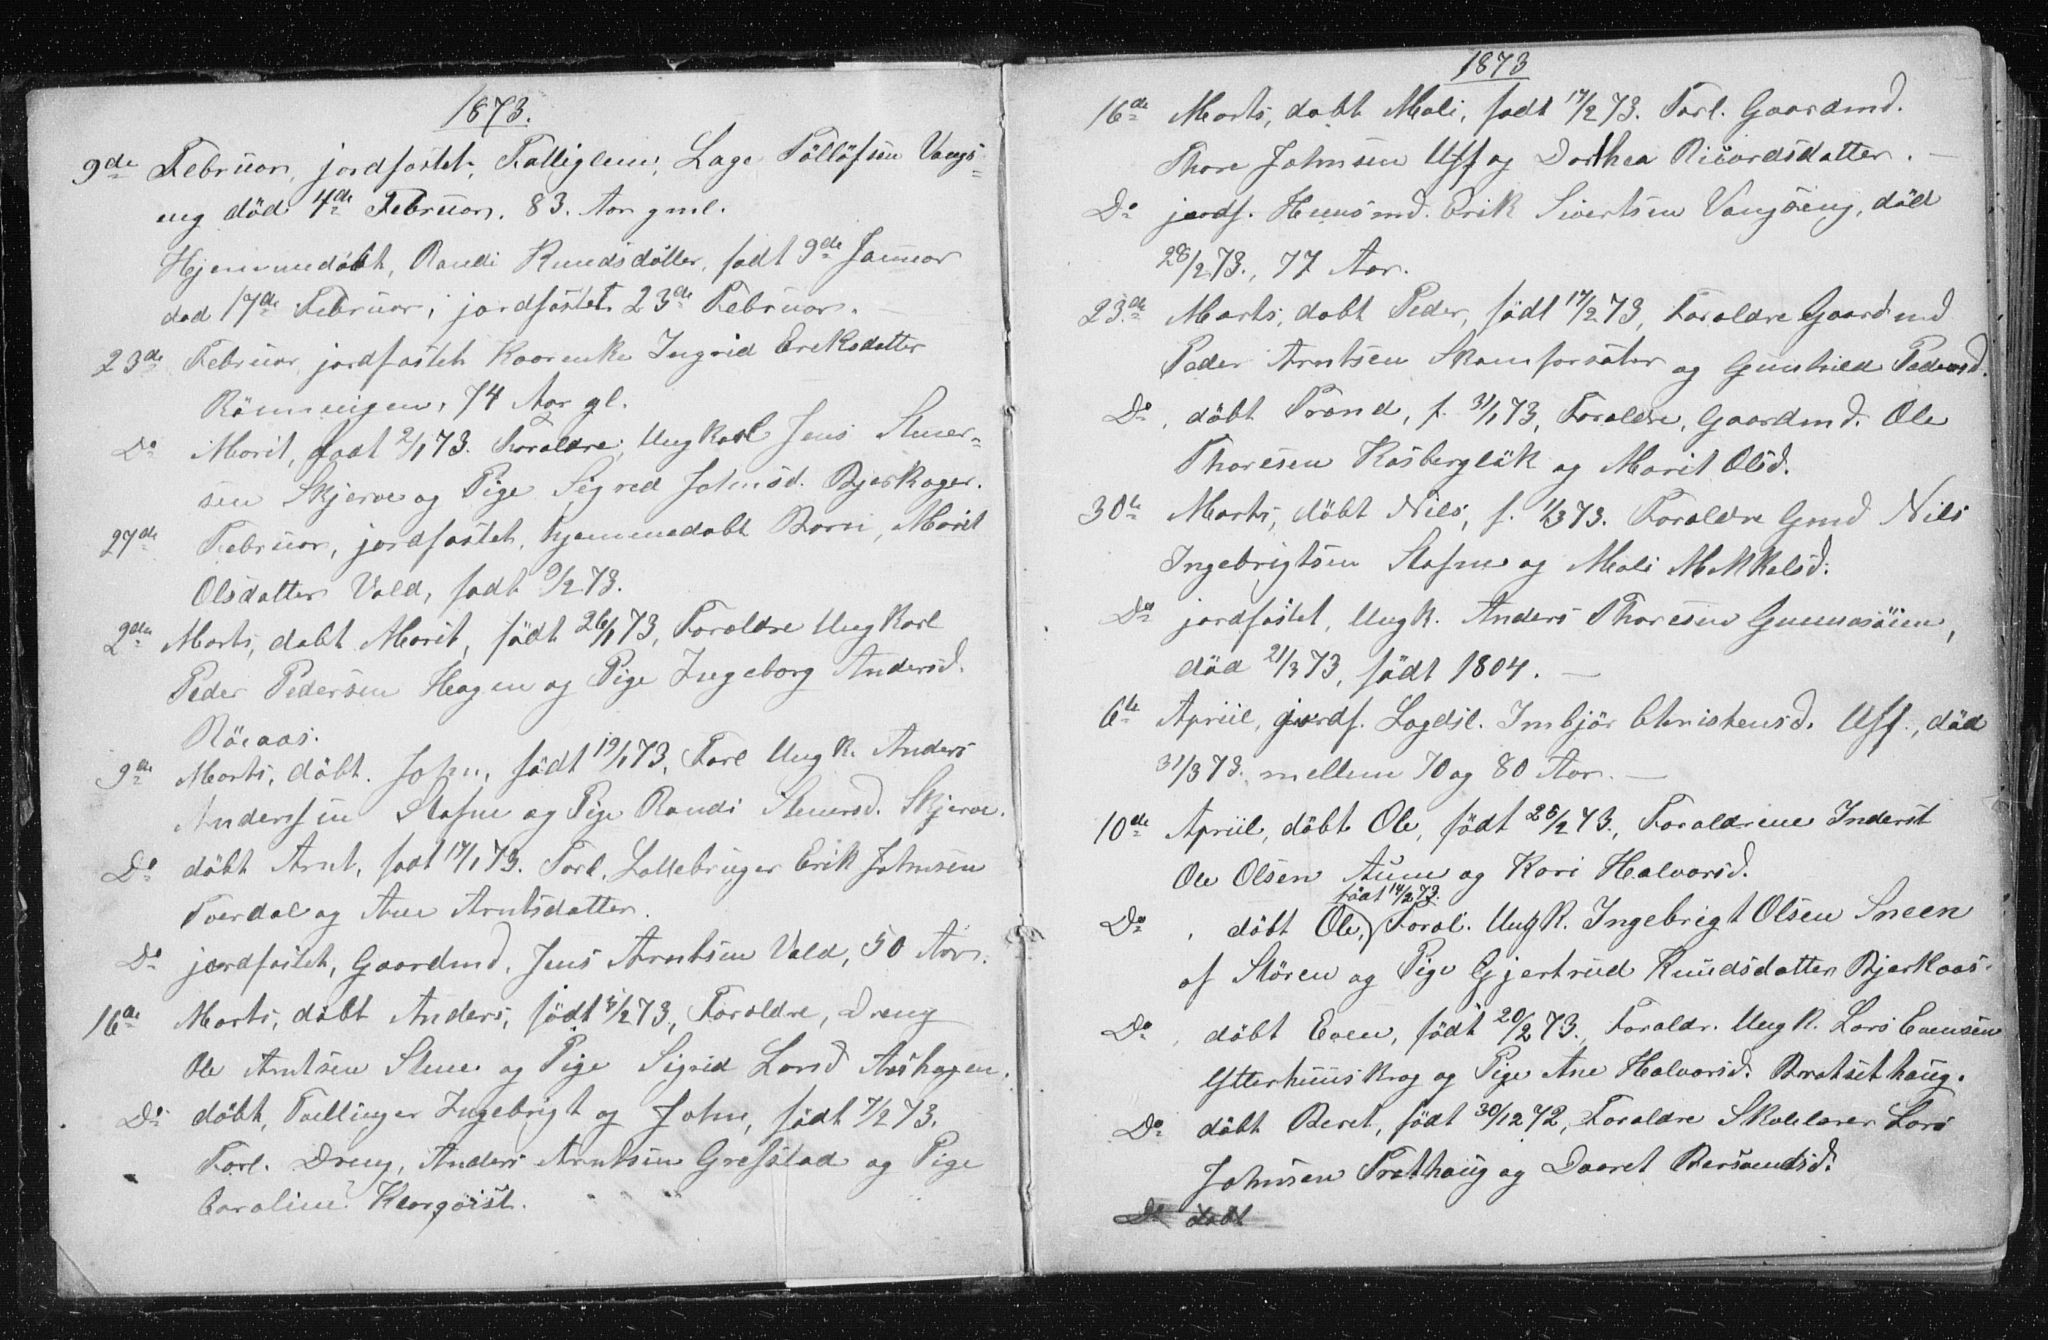 1873.
9de Februar, jordfæstet, Fattiglem, Lage Tølløfsen Vangs=
eng død 4de Februar. 83. Aar gml.
Hjemmedøbt, Randi Knudsdatter, født 9de Januar
død 17de Februar, jordfæstet 23de Februar.
23de Februar, jordfæstet Kaarenke Ingrid Eriksdatter
Rønningen, 74 Aar gl.
Do Marit, født 2/1 73. Forældre, Ungkarl Jens Stener=
sen Skjerve og Pige Sigred Johnsd. Bjerkager.
27de Februar, jordfæstet, hjemmedøbt Barn, Marit
Olsdatter Vold, født 9/2 73.
2den Marts, døbt Marit, født 26/1 73, Forældre Ungkarl
Peder Pedersen Haagen og Pige Ingeborg Andersd.
Röeaas.
9de Marts, døbt. John, født 19/1 73, Forl Ungk. Anders
Anderssen Stafne og Pige Randi Stenersd. Skjerve.
Do døbt Arnt, født 17/1 73. Forl. Lottebruger Erik Johnsen
Tverdal og Ane Arntsdatter.
Do jordfæstet, Gaardmd. Jens Arntsen Vold, 50 Aar.
16de Marts, døbt Anders, født /2 73, Forældre, Dreng
Ole Arntsen Stene og Pige Sigrid Larsd Aashagen.
Do døbt, Tvillinger Ingebrigt og John, født 7/2 73.
Forl. Dreng, Anders Arntsen Grefstad og Pige
Caroline
1873
16de Marts, døbt Mali, født 17/2 73. Forl. Gaardmd.
Thore Johnsen Uff og Dorthea Ricardsdatter. —
Do jordf. Huusmd. Erik Sivertsen Vangseng, død
28/2 73., 77 Aar.
23de Marts, døbt Peder, født 17/2 73, Forældre Gaardmd
Peder Arntsen Skamforsæter og Gunhild Pedersd.
Do, døbt Trond, f. 31/1 73, Forældre, Gaardmd. Ole
Thoresen Kosbergløk og Marit Olsd.
30te Marts, døbt Nils, f. 1/3 73. Forældre Gmd Nils
Ingebrigtsen Stafne og Mali Mikkelsd.
Do jordfæstet, Ungk. Anders Thoresen Gunnesöien,
død 21/3 73, født 1804. —
6te April, jordf. Lægdsl. Imbjør Christensd. Uff., død
31/3 73. mellem 70 og 80 Aar. —
10de April, døbt Ole, født 25/2 73., Forældrene Inderst
Ole Olsen Aune og Kari Halvorsd.
født 14/2 73.
Do, døbt Ole, Foræl. Ungk. Ingebrigt Olsen Sneen
af Stören og Pige Gjertrud Knudsdatter Bjerkaas.
Do, døbt Even, født 20/2 73., Forældr. Ungk. Lars Evensen
Ytterhuuskrog og Pige Ane Halvorsd. Bratsethaug.
Do døbt Beret, født 30/12 72, Forældre Skolelærer Lars
Johnsen Trøthaug og Daaret Bersvendsd.
Do døbt